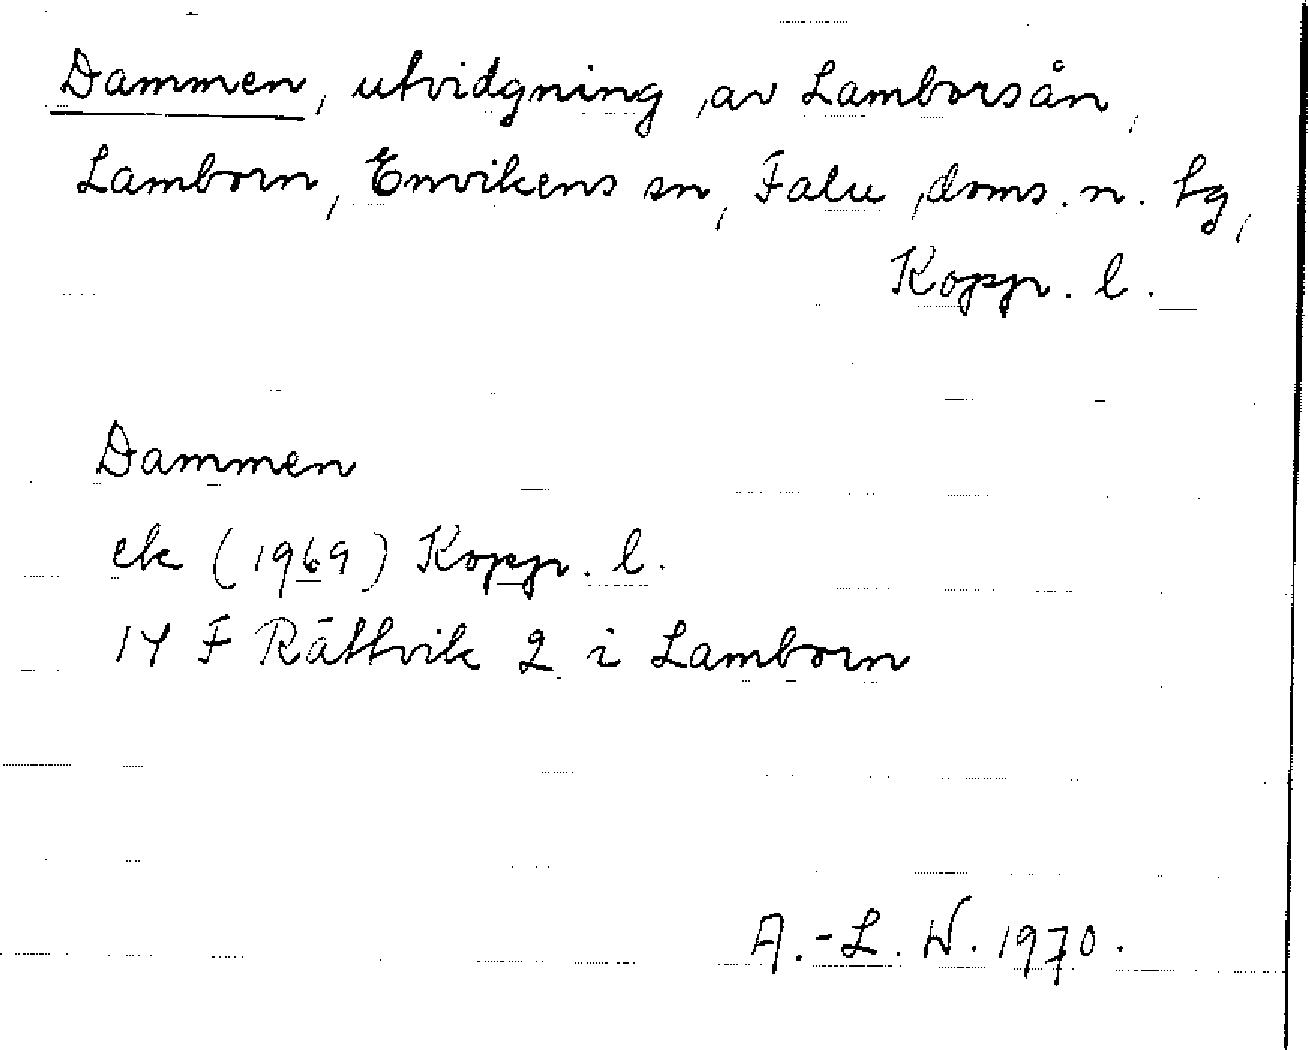 Dammen, utvidgning av Lamborsån,
Lamborn, Envikens sn, Falu doms. n. tg,
Kopp. l.
Dammen
ek (1969) Kopp. l.
14 F Rättvik 2 i Lamborn
A.-L. W. 1970.